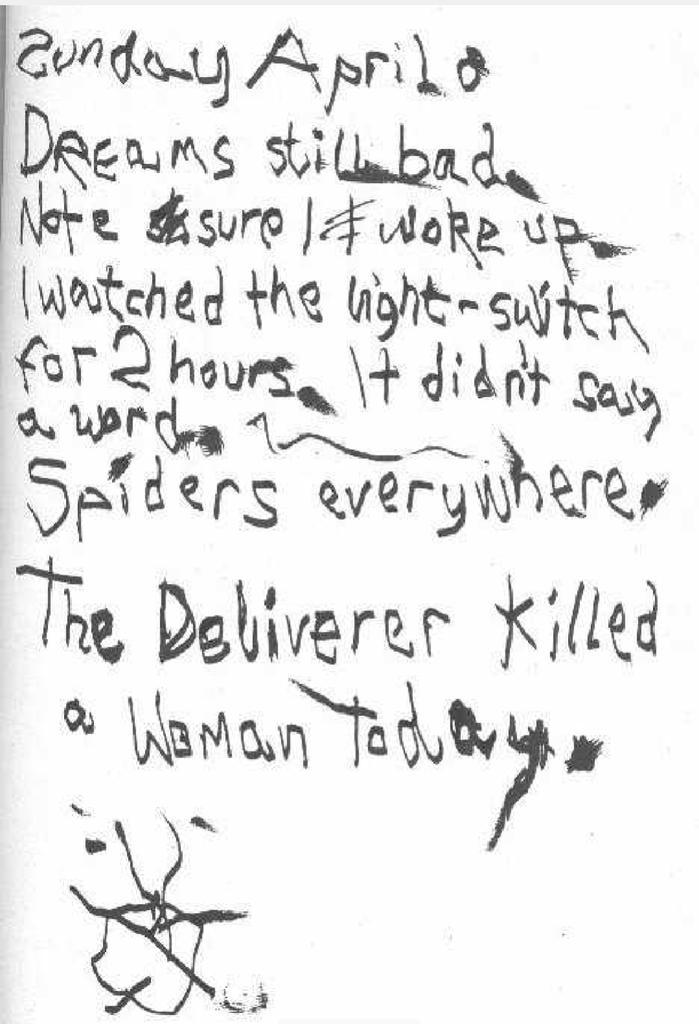 Sunday April 8
DREAMS still bad.
Note sure I woke up.
I watched the light-switch
for 2 hours. It didn't say
a word.
Spiders everywhere.
The Deliverer killed
a Woman Today.